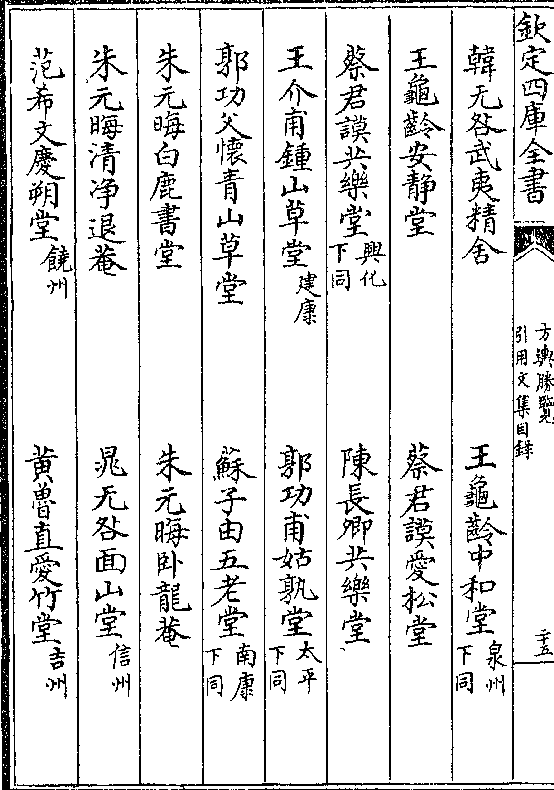 欽定四庫全書
方輿勝覽
引用文集目錄
二十五
韓无咎武夷精舍
王龜齡中和堂泉州下同
王龜齡安静堂
蔡君謨愛松堂
蔡君謨共樂堂興化下同
陳長卿共樂堂
王介甫鍾山草堂建康
郭功甫姑孰堂太平下同
郭功父懷青山草堂
蘇子由五老堂南康下同
朱元晦白鹿書堂
朱元晦卧龍菴
朱元晦清净退菴
晁无咎面山堂信州
范希文慶朔堂饒州
黄魯直愛竹堂吉州